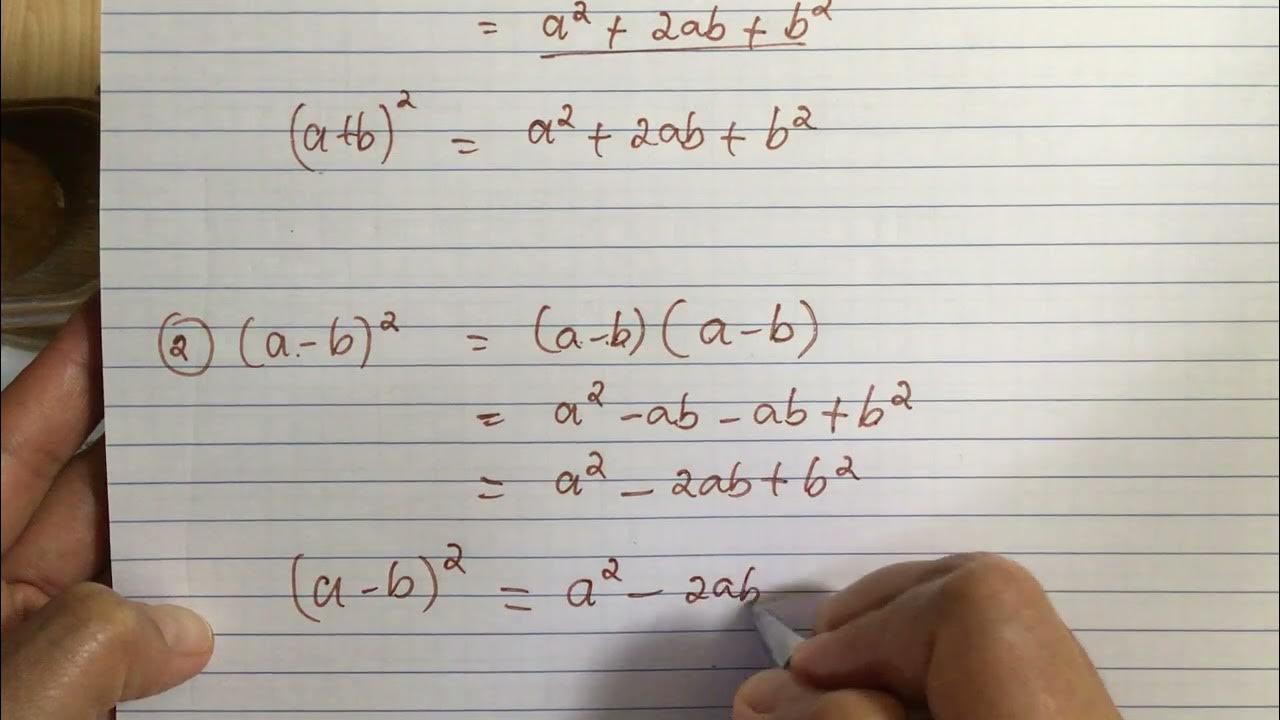 = a² + 2ab + b²
(a+b)² = a² + 2ab + b²
② (a-b)² = (a-b)(a-b)
= a² - ab - ab + b²
= a² - 2ab + b²
(a-b)² = a² - 2ab